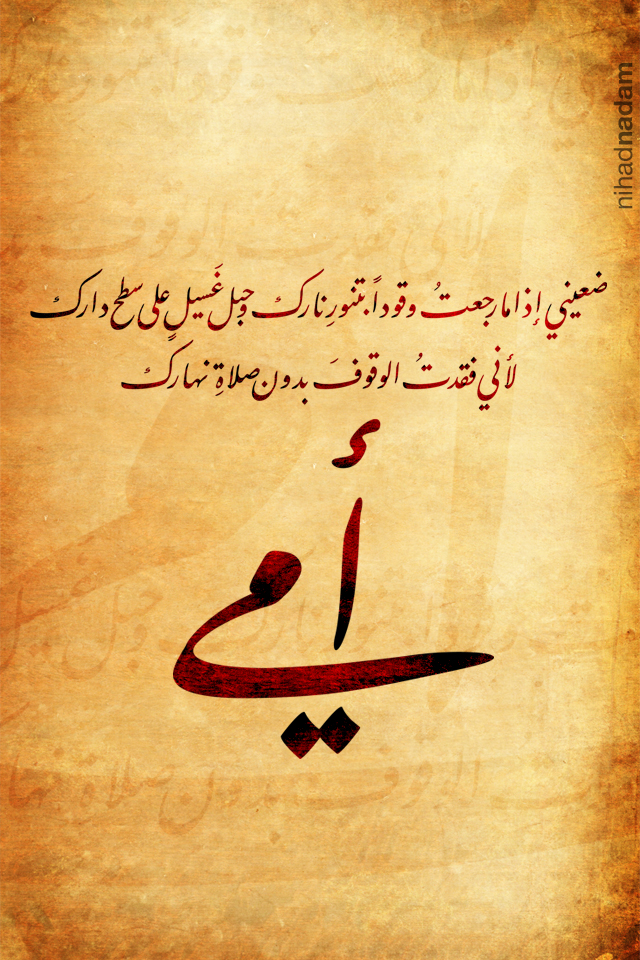 ضعيني إذا ما رجعتُ وقوداً بتنورِ نارك وحبل غَسيلٍ على سطح دارك
لأني فقدتُ الوقوفَ بدون صلاةِ نهارك
أمي
nihadnadam